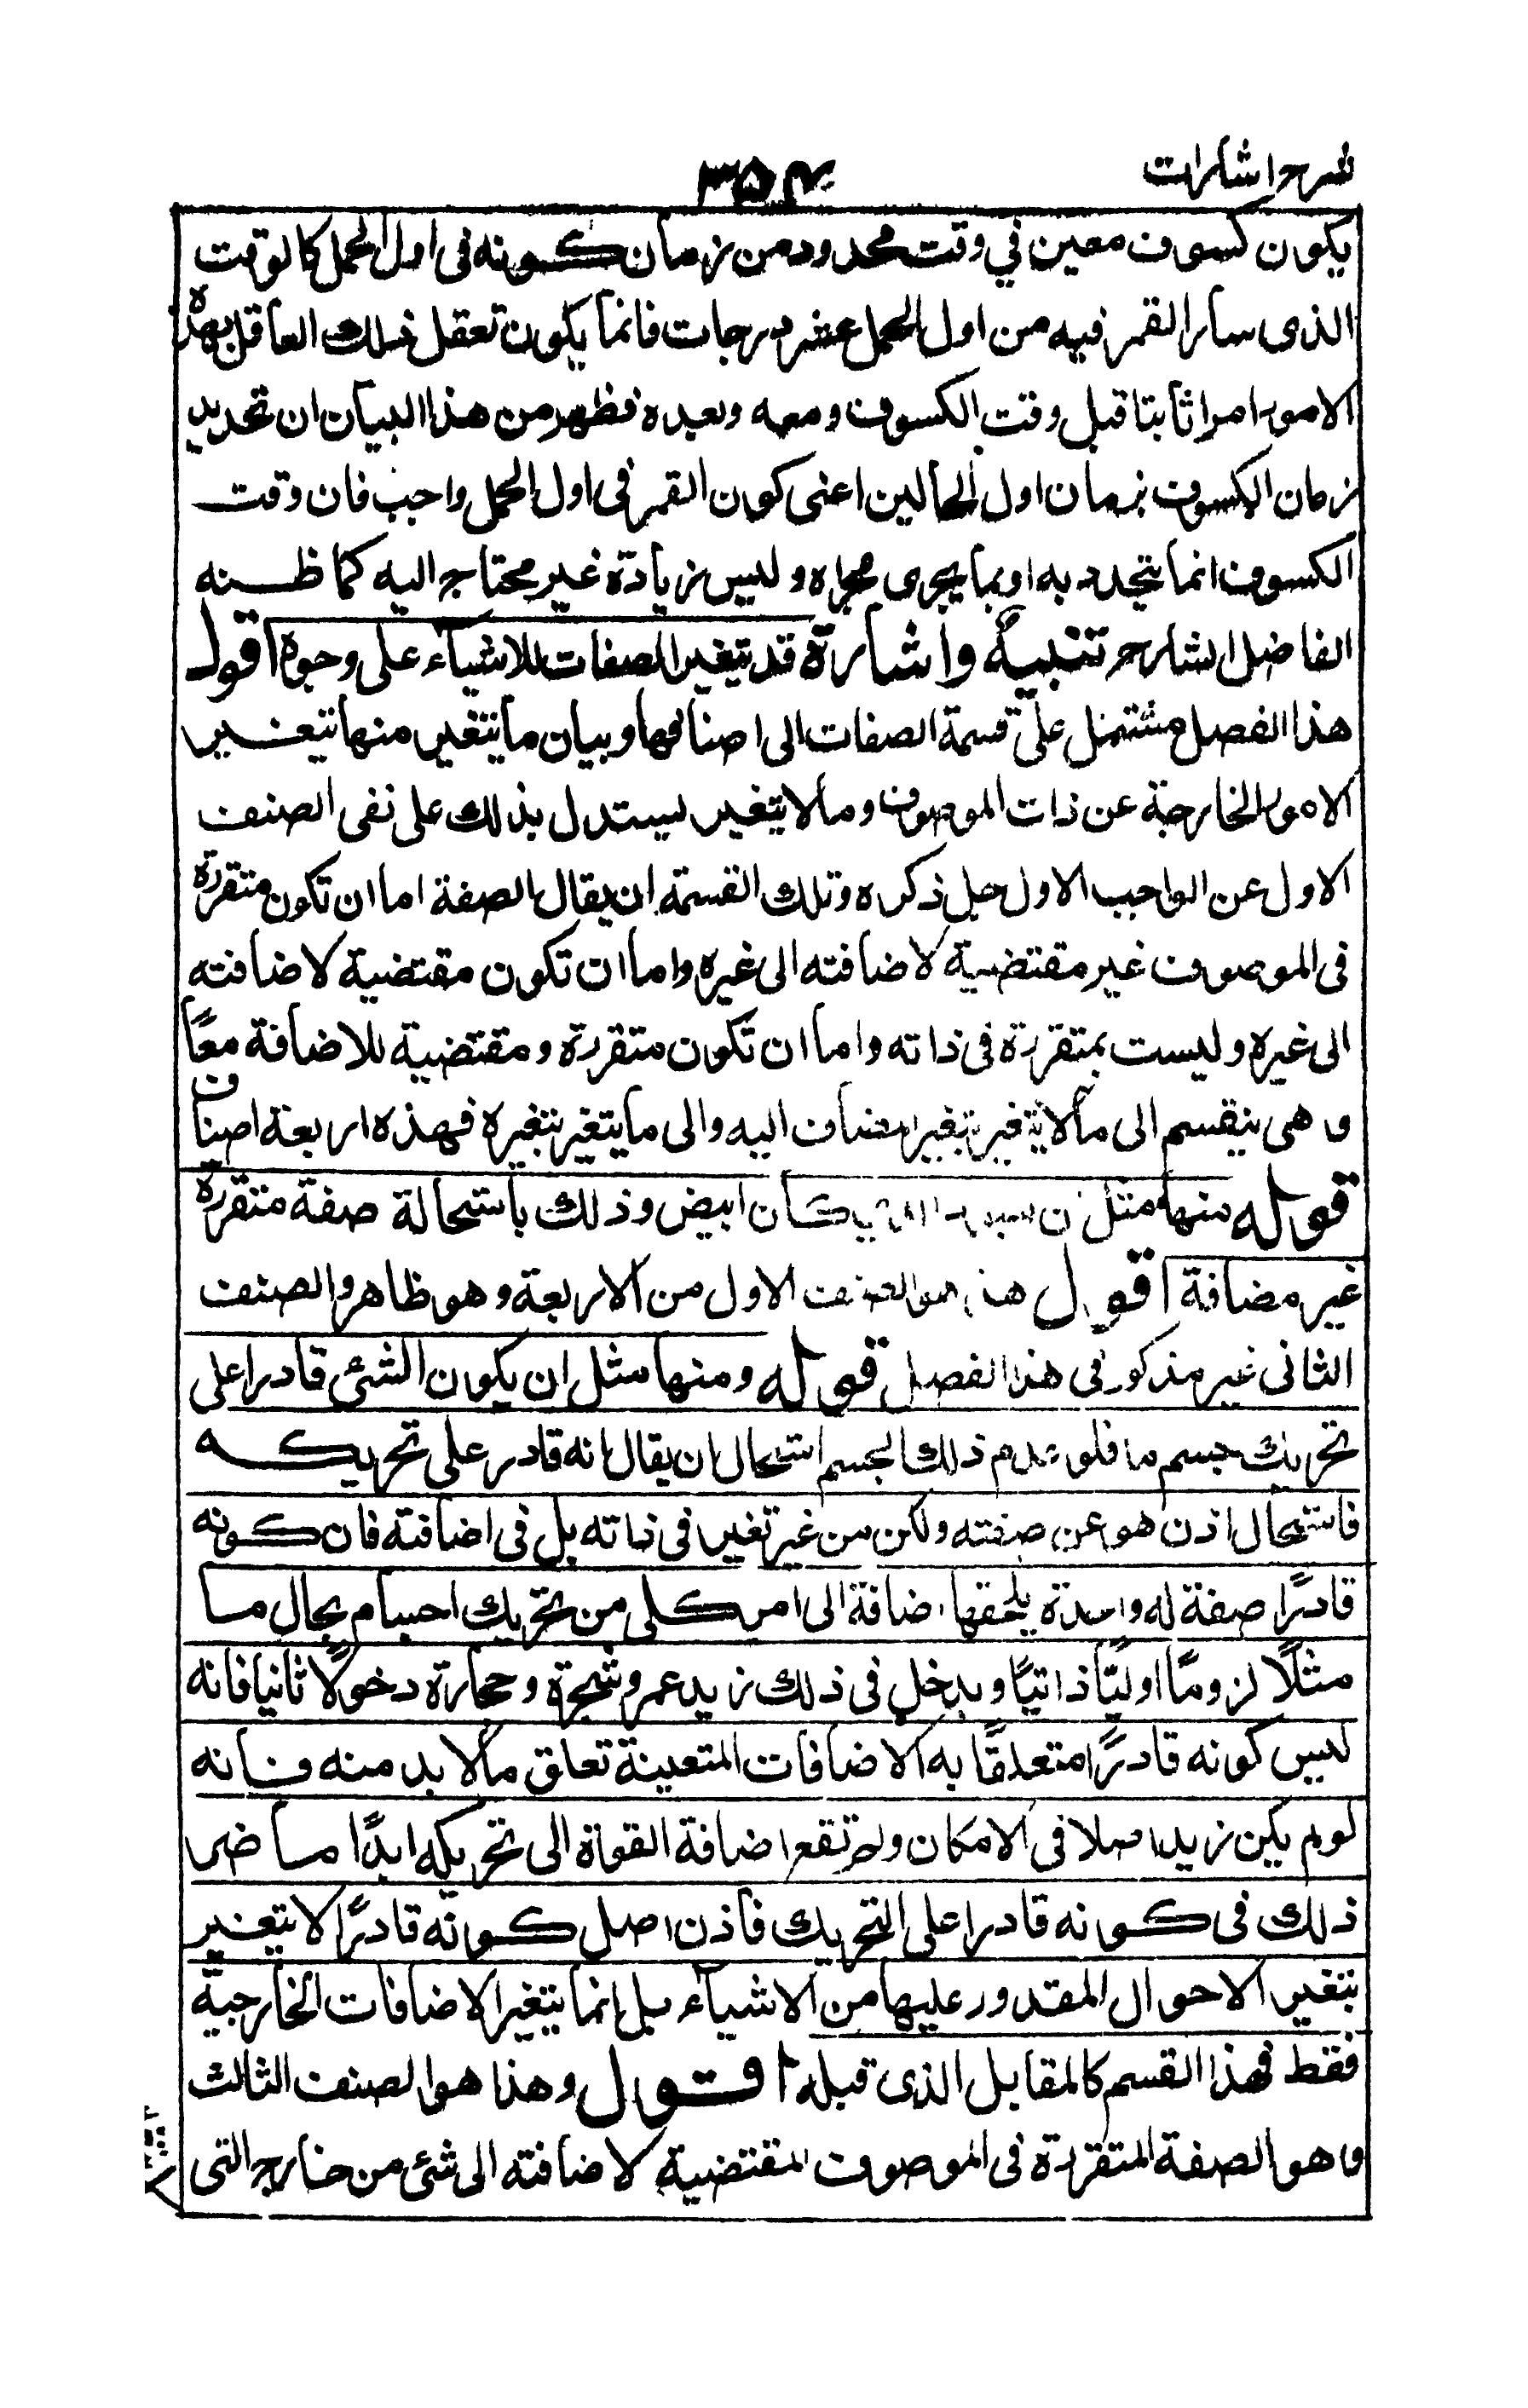 شرح اشارات
۳۵۴
يكون كسوف معين في وقت محدود من زمان كونه فى اول الحمل كالوقت
الذى سار القمر فيه من اول الحمل عشر درجات فانما يكون تعقل ذلك العاقل بهذه
الامور امرا ثابتا قبل وقت الكسوف ومعه وبعده فظهر من هذا البيان ان تحديد
زمان الكسوف بزمان اول الحالين اعنى كون القمر فى اول الحمل واجب فان وقت
الكسوف انما يتحدد به او بما يجرى مجراه وليس زيادة غير محتاج اليه كما ظنه
الفاضل الشارح تنبيه واشارة قد تتغير الصفات للاشياء على وجوه اقول
هذا الفصل مشتمل على قسمة الصفات الى اصنافها وبيان ما يتغير منها بتغير
الامور الخارجة عن ذات الموصوف وما لا يتغير ليستدل بذلك على نفى الصنف
الاول عن الواجب الاول جل ذكره وتلك القسمة ان يقال الصفة اما ان تكون متقررة
فى الموصوف غير مقتضية لاضافته الى غيره واما ان تكون مقتضية لاضافته
الى غيره وليست بمتقررة فى ذاته واما ان تكون متقررة ومقتضية للاضافة معًا
وهى ينقسم الى ما لا يتغير بتغير المضاف اليه والى ما يتغير بتغيره فهذه اربعة اصناف
قوله منها مثل ان يسود الذى كان ابيض وذلك باستحالة صفة متقررة
غير مضافة اقول هذا هو الصنف الاول من الاربعة وهو ظاهر والصنف
الثانى غير مذكور فى هذا الفصل قوله ومنها مثل ان يكون الشئ قادرا على
تحريك جسم ما فلو عدم ذلك الجسم استحال ان يقال انه قادر على تحريكه
فاستحال اذن هو عن صفته ولكن من غير تغير فى ذاته بل فى اضافته فان كونه
قادرًا صفة له واحدة يلحقها اضافة الى امر كلى من تحريك اجسام بحال ما
مثلًا لزومًا اوليًا ذاتيًا ويدخل فى ذلك زيد عمرو شجرة وحجارة دخولًا ثانيا فانه
ليس كونه قادرًا متعلقًا به الاضافات المتعينة تعلق ما لا بد منه فانه
لو لم يكن زيد اصلا فى الامكان ولم تقع اضافة القوة الى تحريكه ابدًا ما ضر
ذلك فى كونه قادرا على التحريك فاذن اصل كونه قادرًا لا يتغير
بتغير الاحوال المقدور عليها من الاشياء بل انما يتغير الاضافات الخارجية
فقط فهذا القسم كالمقابل الذى قبله اقول وهذا هو الصنف الثالث
وهو الصفة المتقررة فى الموصوف المقتضية لاضافته الى شئ من خارج التى